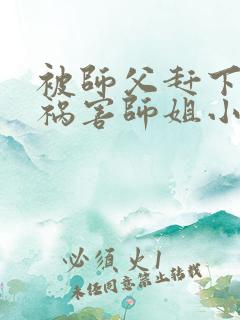 被師父赶下
祸害師姐小
必須火1
未任同意禁止转载